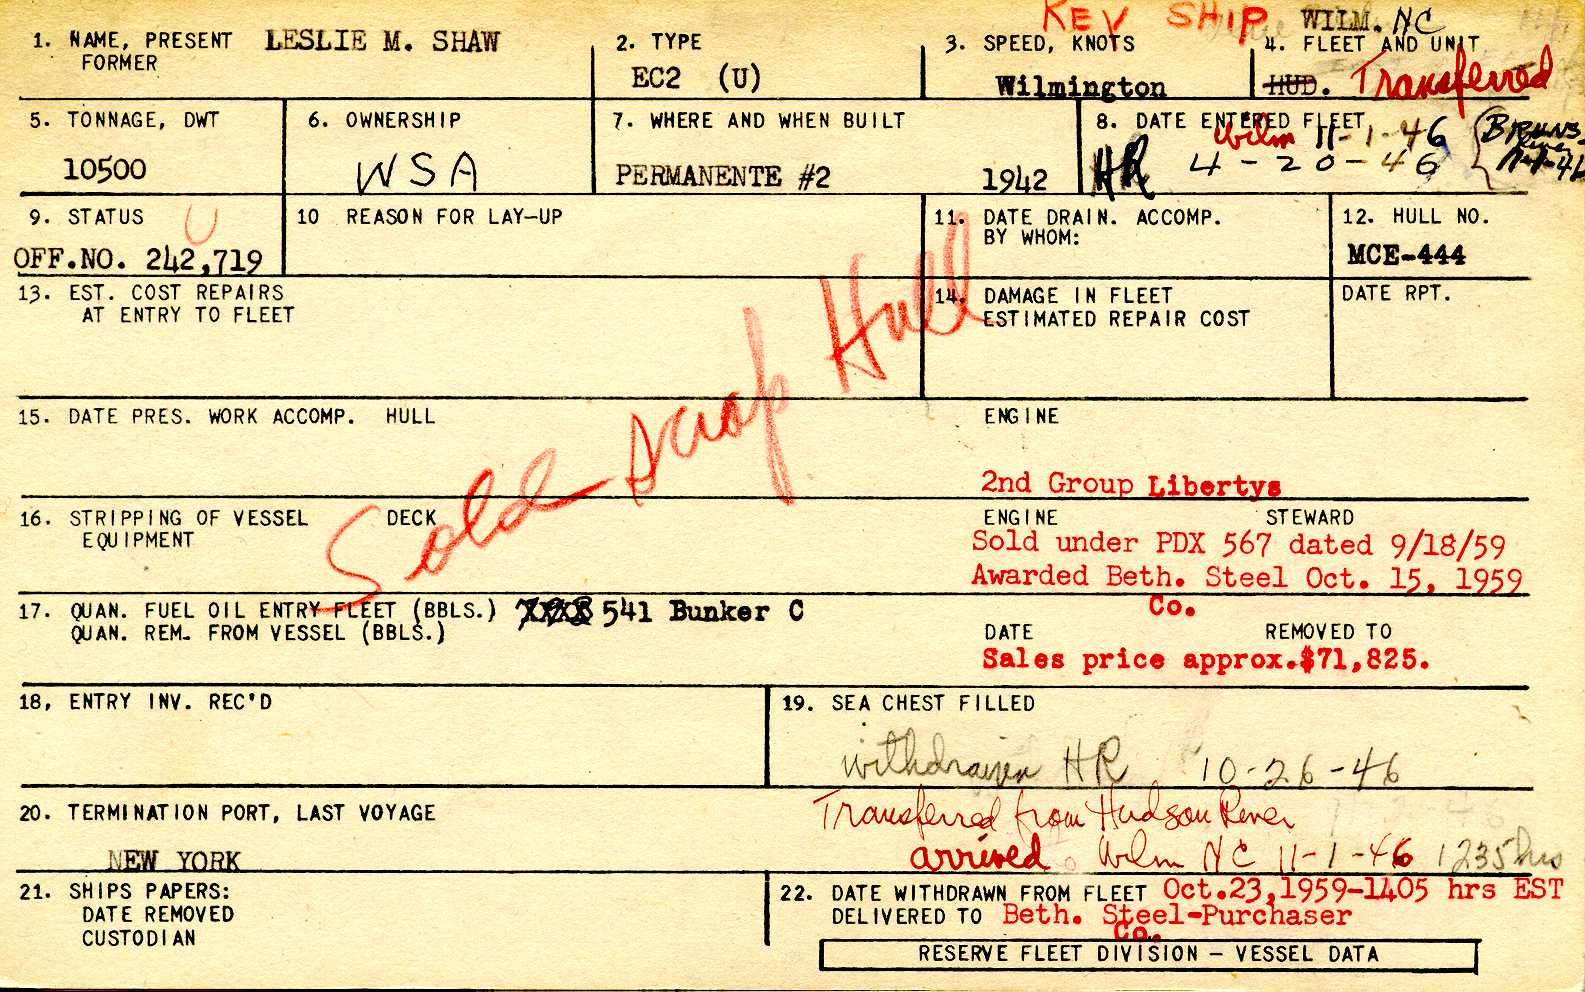 KEV SHIP WILM. NC
1. NAME, PRESENT LESLIE M. SHAW
FORMER
2. TYPE
EC2 (U)
3. SPEED, KNOTS
Wilmington
4. FLEET AND UNIT
HUD. Transferred
5. TONNAGE, DWT
10500
6. OWNERSHIP
WSA
7. WHERE AND WHEN BUILT
PERMANENTE #2 1942
8. DATE ENTERED FLEET
Wilm 11-1-46
HR 4-20-46
9. STATUS U
OFF.NO. 242,719
10 REASON FOR LAY-UP
11. DATE DRAIN. ACCOMP.
BY WHOM:
12. HULL NO.
MCE-444
13. EST. COST REPAIRS
AT ENTRY TO FLEET
14. DAMAGE IN FLEET
ESTIMATED REPAIR COST
DATE RPT.
Sold scrap Hull
15. DATE PRES. WORK ACCOMP. HULL ENGINE
2nd Group Libertys
16. STRIPPING OF VESSEL DECK ENGINE STEWARD
EQUIPMENT
Sold under PDX 567 dated 9/18/59
Awarded Beth. Steel Oct. 15, 1959
Co.
17. QUAN. FUEL OIL ENTRY FLEET (BBLS.) 541 Bunker C
QUAN. REM. FROM VESSEL (BBLS.) DATE REMOVED TO
Sales price approx.$71,825.
18, ENTRY INV. REC'D
19. SEA CHEST FILLED
withdrawn HR 10-26-46
20. TERMINATION PORT, LAST VOYAGE
NEW YORK
Transferred from Hudson River
arrived Wilm NC 11-1-46 1235 hrs
21. SHIPS PAPERS:
DATE REMOVED
CUSTODIAN
22. DATE WITHDRAWN FROM FLEET Oct.23,1959-1405 hrs EST
DELIVERED TO Beth. Steel-Purchaser
Co.
RESERVE FLEET DIVISION - VESSEL DATA